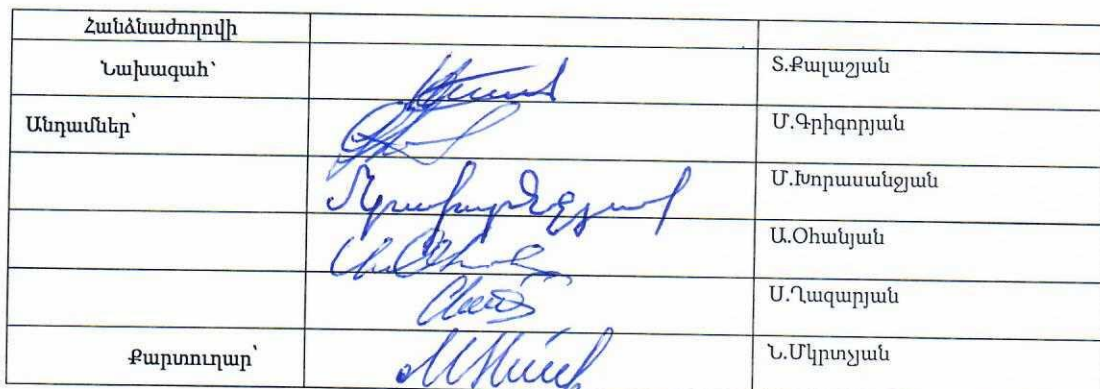 Հանձնաժողովի
Նախագահ՝ Տ.Քալաշյան
Անդամներ՝ Մ.Գրիգորյան
Մ.Խորասանջյան
Ա.Օհանյան
Ս.Ղազարյան
Քարտուղար՝ Ն.Մկրտչյան